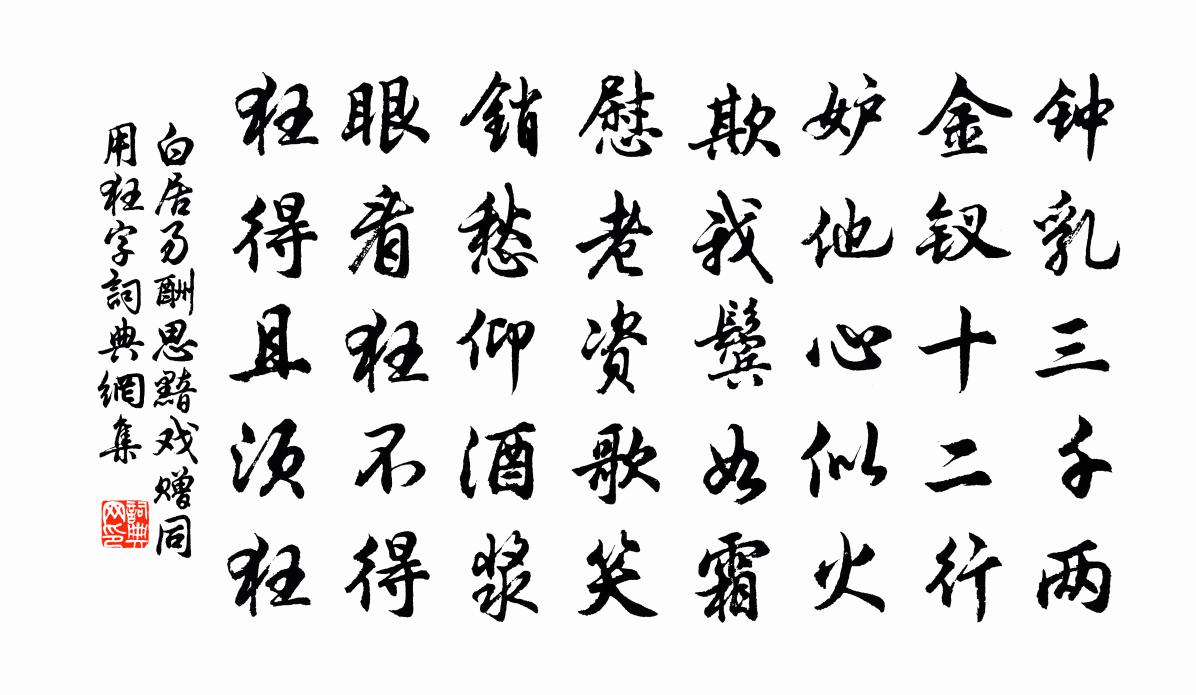 钟乳三千两
金钗十二行
妒他心似火
欺我鬓如霜
慰老资歌笑
銷愁仰酒漿
眼看狂不得
狂得且须狂
白居易酬思黯戏赠同
用狂字詞典網集
詞典
网印